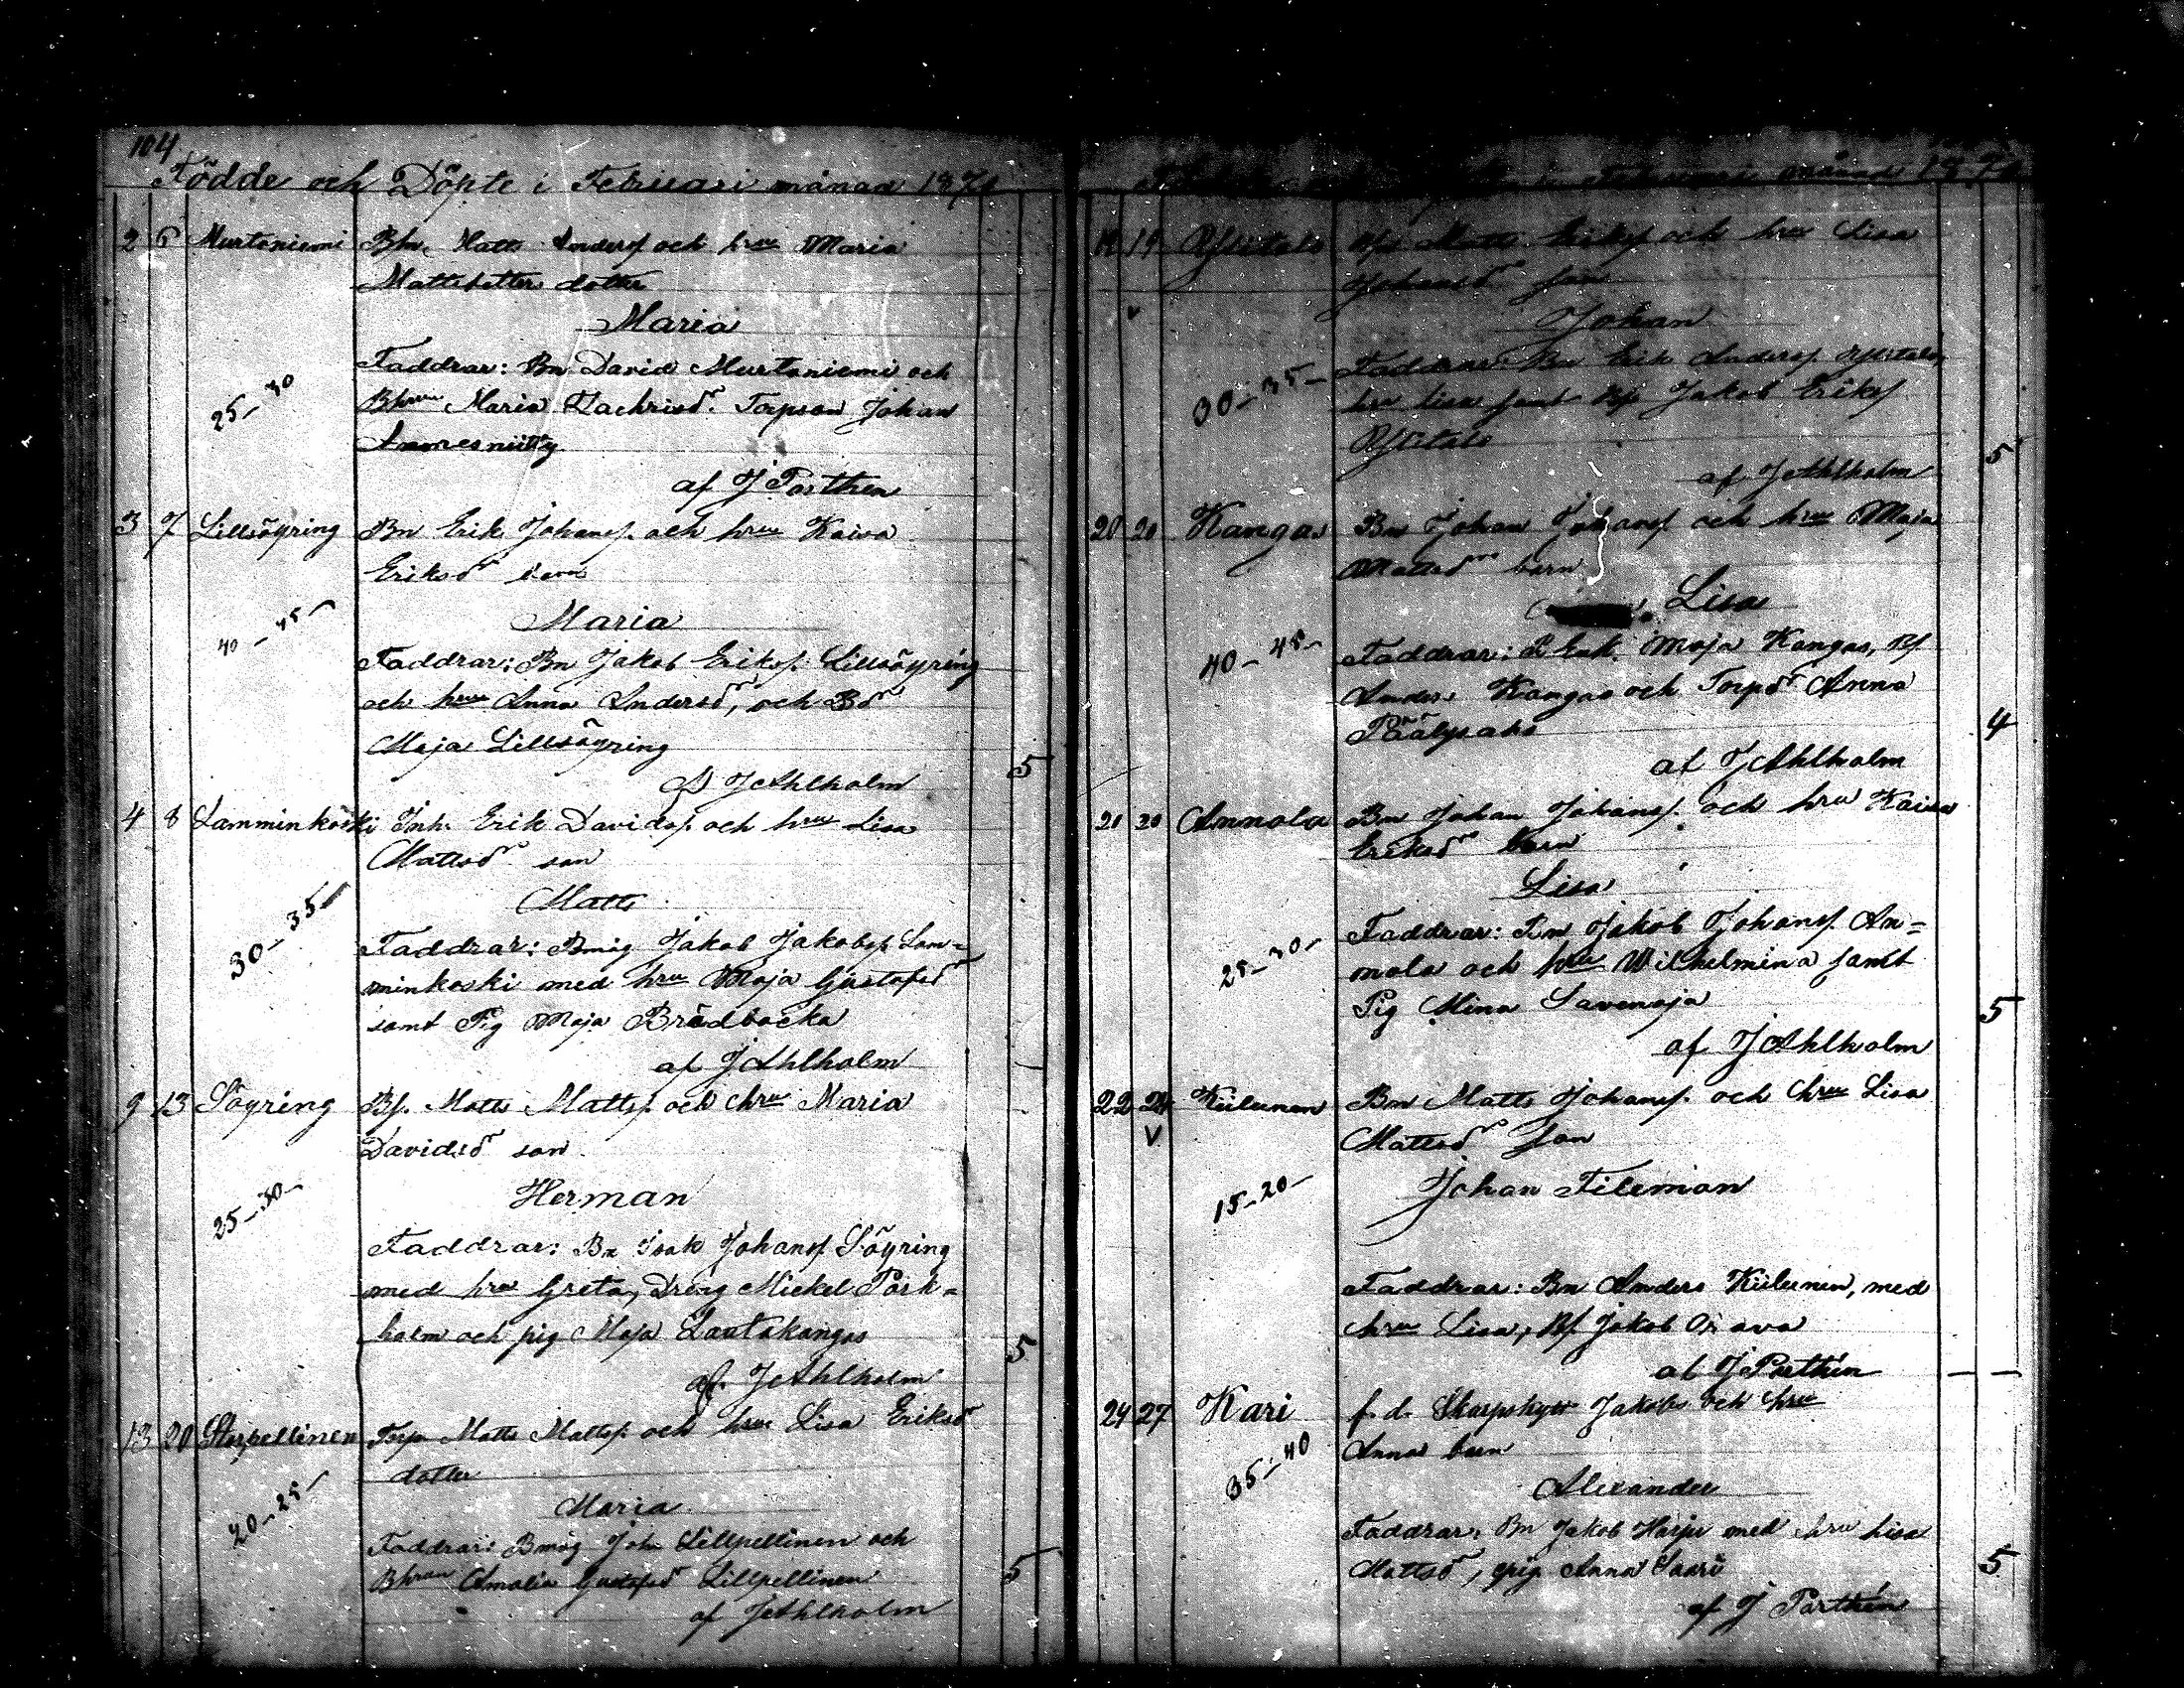 104
Födde och Döpte i Februari månad 187
2 6 Murtoniemi Bm Matts Anderss och hru Maria
Mattsdotters dotter
Maria
Faddrar: Bn David Murtoniemi och
25-30
Bhrun Maria Zachrisdr. Torpson Johan
Ammesniitty
af J Parthen
3 7 Lillsöyring Bn Erik Johanss. och hru Kaisa
Eriksdr
Maria
40-45-
Faddrar: Bn Jakob Erikss. Lillsöyring
och hru Anna Andersdr, och Bdr
Maja Lillsöyring
5
af J Ahlholm
4 8 Lamminkoski Inh. Erik Davidss. och hru Lisa
Mattsdr son
Matts
30-35-
Faddrar: Bmåg Jakob Jakobss. Lam=
minkoski med hru Maja Gustafsdr
samt Pig Maja Brådbacka
af J Ahlholm
9 13 Söyring Bs. Matts Mattss. och hru Maria
Davidsdr son
Herman
25-30-
Faddrar: Bn Isak Johanss Söyring
med hru Greta, Dreng Mickel Park=
holm och pig Maja Lautakangas
5
af J Ahlholm
13 20 Storpellinen Torp Matts Mattss. och hru Lisa Eriksdr
dotter
Maria
20-25-
Faddrar: Bmåg Joh Lillpellinen och
Bhrun Amalia Gustafsdr Lillpellinen
5
af J Ahlholm
månad 187
19 19 Bs Matts Erikss och hru Lisa
Johansdr son
Johan
30-35-
Faddrar: Bn Erik Anderss
hru Lisa samt Bs Jakob Erikss
5
af J Ahlholm
20 20 Kangas Bn Johan Johanss och hru Maja
Mattsdrs barn
Lisa
40-45-
Faddrar: Enk. Maja Kangas, Bs.
Anders Kangas och Torpdr Anna
Päälysaho
4
af J Ahlholm
21 20 Ammala Bn Johan Johanss. och hru Kaisa
Eriksdr barn
Lisa
25-30-
Faddrar: Bn Jakob Johanss. Am=
mala och hru Wilhelmina samt
Pig Mina Savenoja
5
af J Ahlholm
22 24 Kiilunen Bn Matts Johanss. och hru Lisa
Mattsdr son
Johan Fileman
15-20-
Faddrar: Bn Anders Kiilunen, med
hru Lisa, Bs. Jakob Orava
af J Parthén
24 27 Kari f. d. Skarpskytt Jakob och hru
Anna barn
Alexander
35-40
Faddrar: Bn Jakob Harju med hru Lisa
Mattsdr, pig Anna Saari
5
af J Parthén